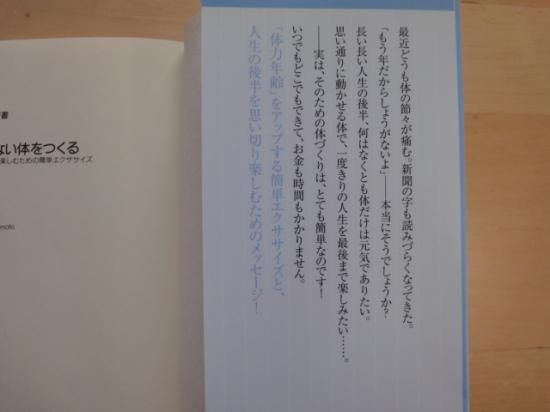 最近どうも体の節々が痛む。新聞の字も読みづらくなってきた。
「もう年だからしょうがないよ」——本当にそうでしょうか？
長い長い人生の後半、何はなくとも体だけは元気でありたい。
思い通りに動かせる体で、一度きりの人生を最後まで楽しみたい……。
——実は、そのための体づくりは、とても簡単なのです！
いつでもどこでもできて、お金も時間もかかりません。
「体力年齢」をアップする簡単エクササイズと、
人生の後半を思い切り楽しむためのメッセージ！
書
ない体をつくる
楽しむための簡単エクササイズ
moto